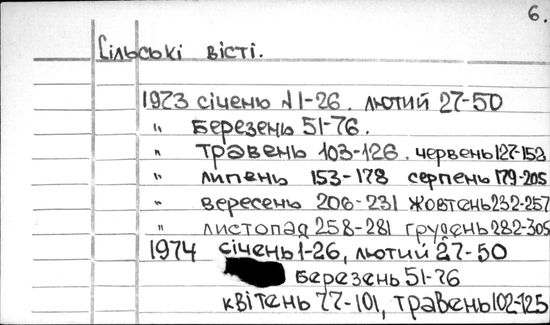 6.
Сільські вісті.
1973 січень №1-26. лютий 27-50
" березень 51-76.
" травень 103-126. червень 127-152
" липень 153-178 серпень 179-205
" вересень 206-231 жовтень 232-257
" листопад 258-281 грудень 282-305
1974 січень 1-26, лютий 27-50
березень 51-76
квітень 77-101, травень 102-125